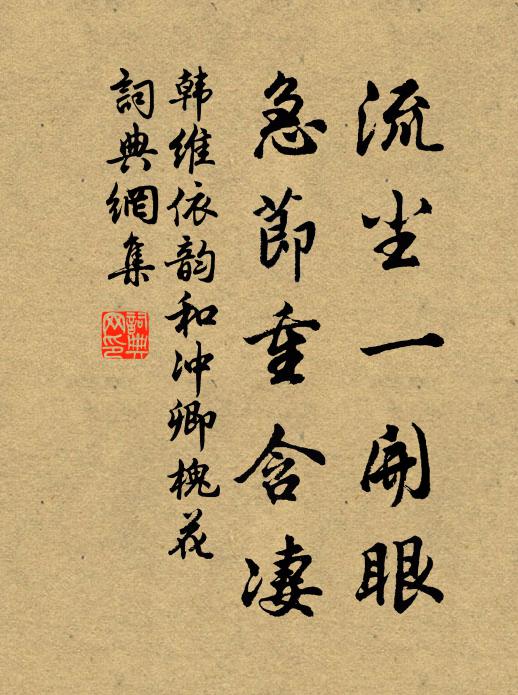 流尘一開眼
急節重含淒
韩维依韵和冲卿槐花
詞典網集
詞典
网印